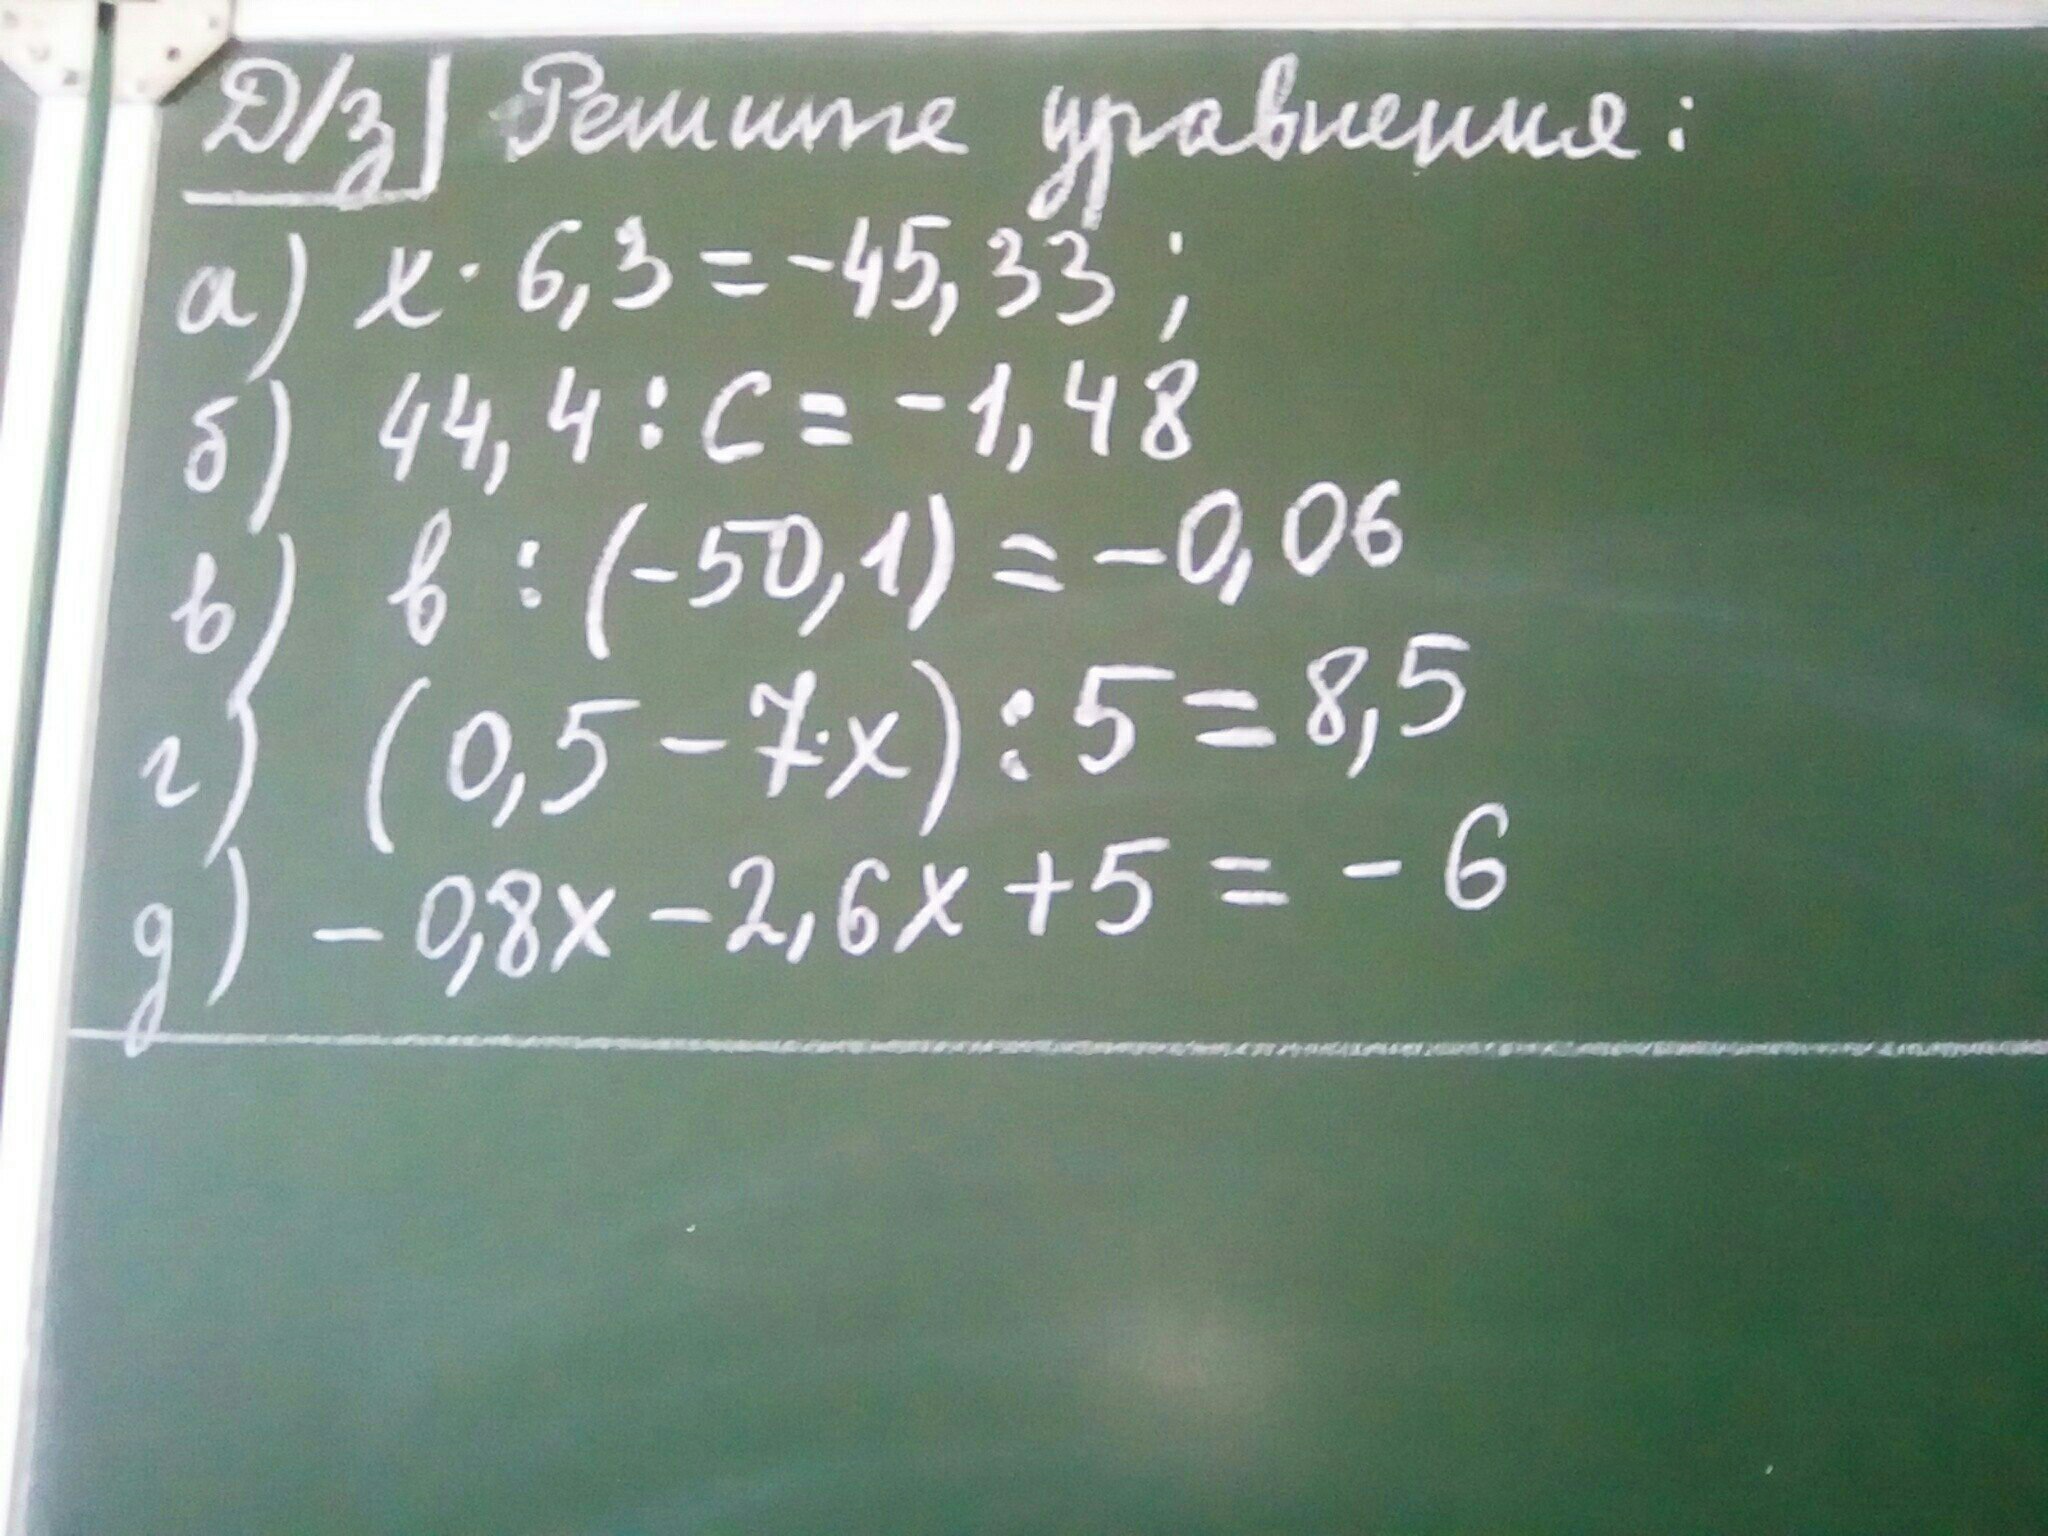 Д/з Решите уравнения:
а) x · 6,3 = -45,33 ;
б) 44,4 : c = -1,48
в) в : (-50,1) = -0,06
г) (0,5 - 7·x) : 5 = 8,5
д) - 0,8x - 2,6x + 5 = - 6